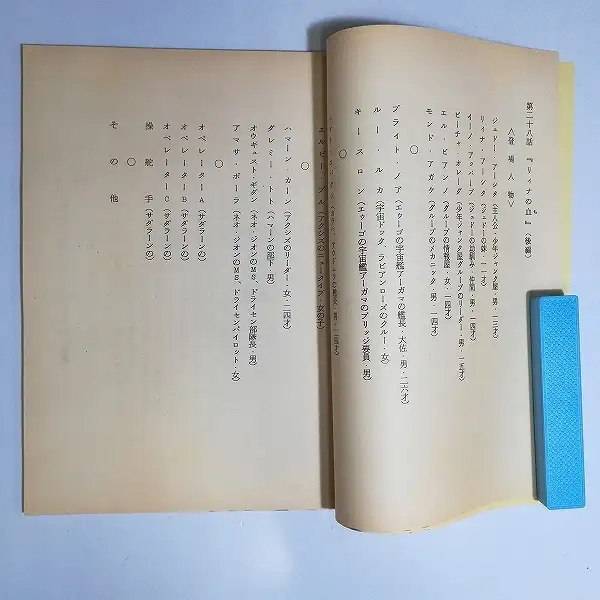 第二十八話 『リィナの血』(後編)
ち
〈登場人物〉
ジュドー・アーシタ (主人公・少年ジャンク屋・男・一三才)
リィナ・アーシタ (ジュドーの妹・一一才)
イーノ・アッバーブ (ジュドーの幼馴み・仲間・男・一四才)
ビーチャ・オレーグ (少年ジャンク屋グループのリーダー・男・一五才)
エル・ビアンノ (グループの情報屋・女・一四才)
モンド・アガケ (グループのメカニック・男・一四才)
○
ブライト・ノア (エゥーゴの宇宙艦アーガマの艦長・大佐・男・二六才)
ルー・ルカ (宇宙ドック、ラビアンローズのクルー・女)
キースロン (エゥーゴの宇宙艦アーガマのブリッジ要員・男)
○
エルピー・プル (アクシズのニュータイプ・女の子)
○
ハマーン・カーン (アクシズのリーダー・女・二四才)
グレミー・トト (ハマーンの部下・男)
オウギュスト・ギダン (ネオ・ジオンのMS、ドライセン部隊長・男)
アマサ・ポーラ (ネオ・ジオンのMS、ドライセンパイロット・女)
○
オペレーターA (サダラーンの)
オペレーターB (サダラーンの)
オペレーターC (サダラーンの)
○
操舵手 (サダラーンの)
その他